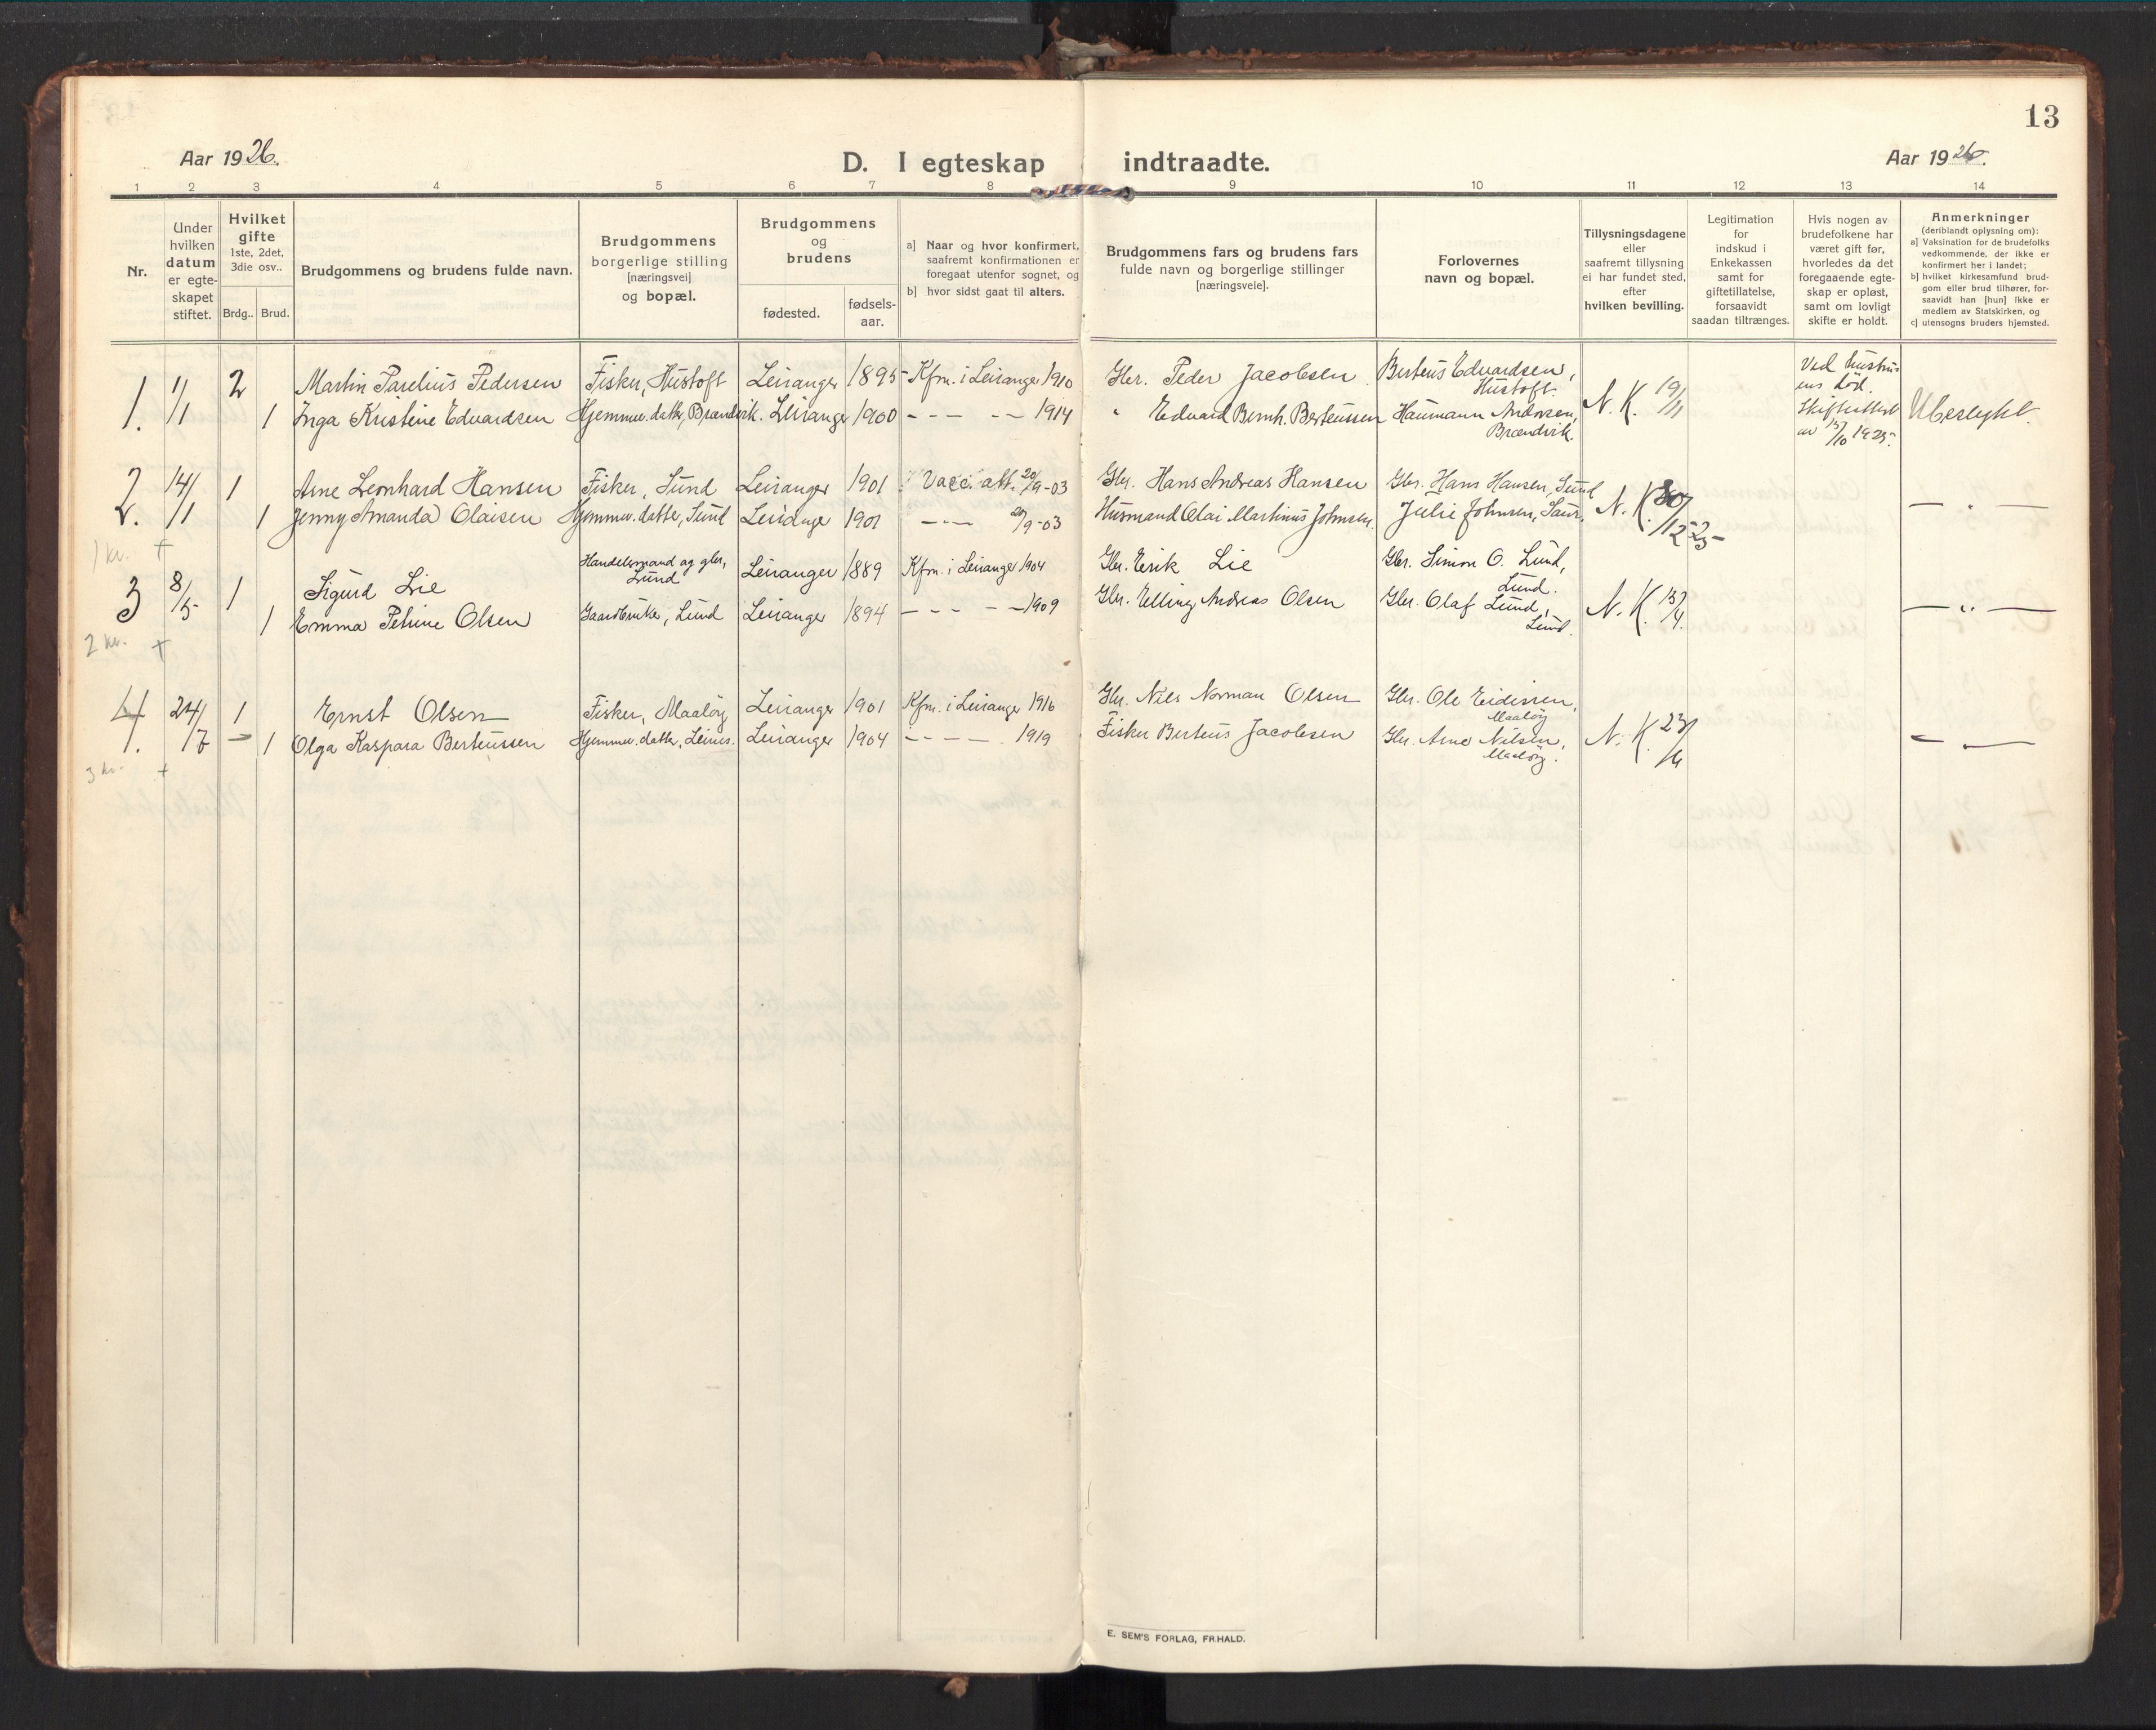 13
Aar 1926.
D. I egteskap indtraadte.
Aar 1926.
1 2 3 4 5 6 7 8 9 10 11 12 13 14
Nr.
Under hvilken datum er egte-skapet stiftet.
Hvilket gifte 1ste, 2det, 3die osv..
Brdg.. Brud.
Brudgommens og brudens fulde navn.
Brudgommens borgerlige stilling [næringsvei] og bopæl.
Brudgommens og brudens
fødested.
fødsels-aar.
a] Naar og hvor konfirmert, saafremt konfirmationen er foregaat utenfor sognet, og
b] hvor sidst gaat til alters.
Brudgommens fars og brudens fars fulde navn og borgerlige stillinger [næringsveie].
Forlovernes navn og bopæl.
Tillysningsdagene eller saafremt tillysning ei har fundet sted, efter hvilken bevilling.
Legitimation for indskud i Enkekassen samt for giftetillatelse, forsaavidt saadan tiltrænges.
Hvis nogen av brudefolkene har været gift før, hvorledes da det foregaaende egte-skap er opløst, samt om lovligt skifte er holdt.
Anmerkninger (deriblandt oplysning om):
a] Vaksination for de brudefolks vedkommende, der ikke er konfirmert her i landet;
b] hvilket kirkesamfund brud-gom eller brud tilhører, for-saavidt han [hun] ikke er medlem av Statskirken, og
c] utensogns bruders hjemsted.
1. 1/1 2 Martin Parelius Pedersen Fisker, Hustoft Leiranger 1895 Kfm. i Leiranger 1910 Gbr. Peder Jacobsen Berteus Edvardsen, Hustoft. N. K. 19/11 Ved hustru-ens död. Skifteattest av 15/10 1925. Ubeslegtet.
1 Inga Kristine Edvardsen Hjemmev. datter, Brændvik. Leiranger 1900 - - - - - 1914 " Edvard Bernh. Berteussen Haumann Andersen, Brændvik.
2. 14/1 1 Arne Leonhard Hansen Fisker, Sund Leiranger 1901 Vacc. att. 20/9-03 Gbr. Hans Andreas Hansen Gbr. Hans Hansen, Sund N. K. 30/12-25 — " —
1 Jenny Amanda Olaisen Hjemmev. datter, Sund Leiranger 1901 - - - 20/9-03 Husmand Olai Martinus Johnsen. Julie Johnsen,
1 kr. +
3 8/5 1 Sigurd Lie Handelsmand og gbr., Lund Leiranger 1889 Kfm. i Leiranger 1904 Gbr. Erik Lie Gbr. Simon O. Lund, Lund. N. K. 15/4. — " —
1 Emma Petrine Olsen Gaardbruker, Lund Leiranger 1894 - - - - - 1909 Gbr. Elling Andreas Olsen Gbr. Olaf Lund, Lund.
2 kr. +
4. 24/7 1 Ernst Olsen Fisker, Maalöy Leiranger 1901 Kfm. i Leiranger 1916 Gbr. Nils Norman Olsen Gbr. Ole Eidissen, Maalöy N. K. 23/6 — " —
1 Olga Kaspara Berteussen Hjemmev. datter, Leines. Leiranger 1904 - - - - 1919 Fisker Berteus Jacobsen Gbr. Arne Nilsen, Maalöy.
3 kr. +
E. SEM'S FORLAG, FR.HALD.